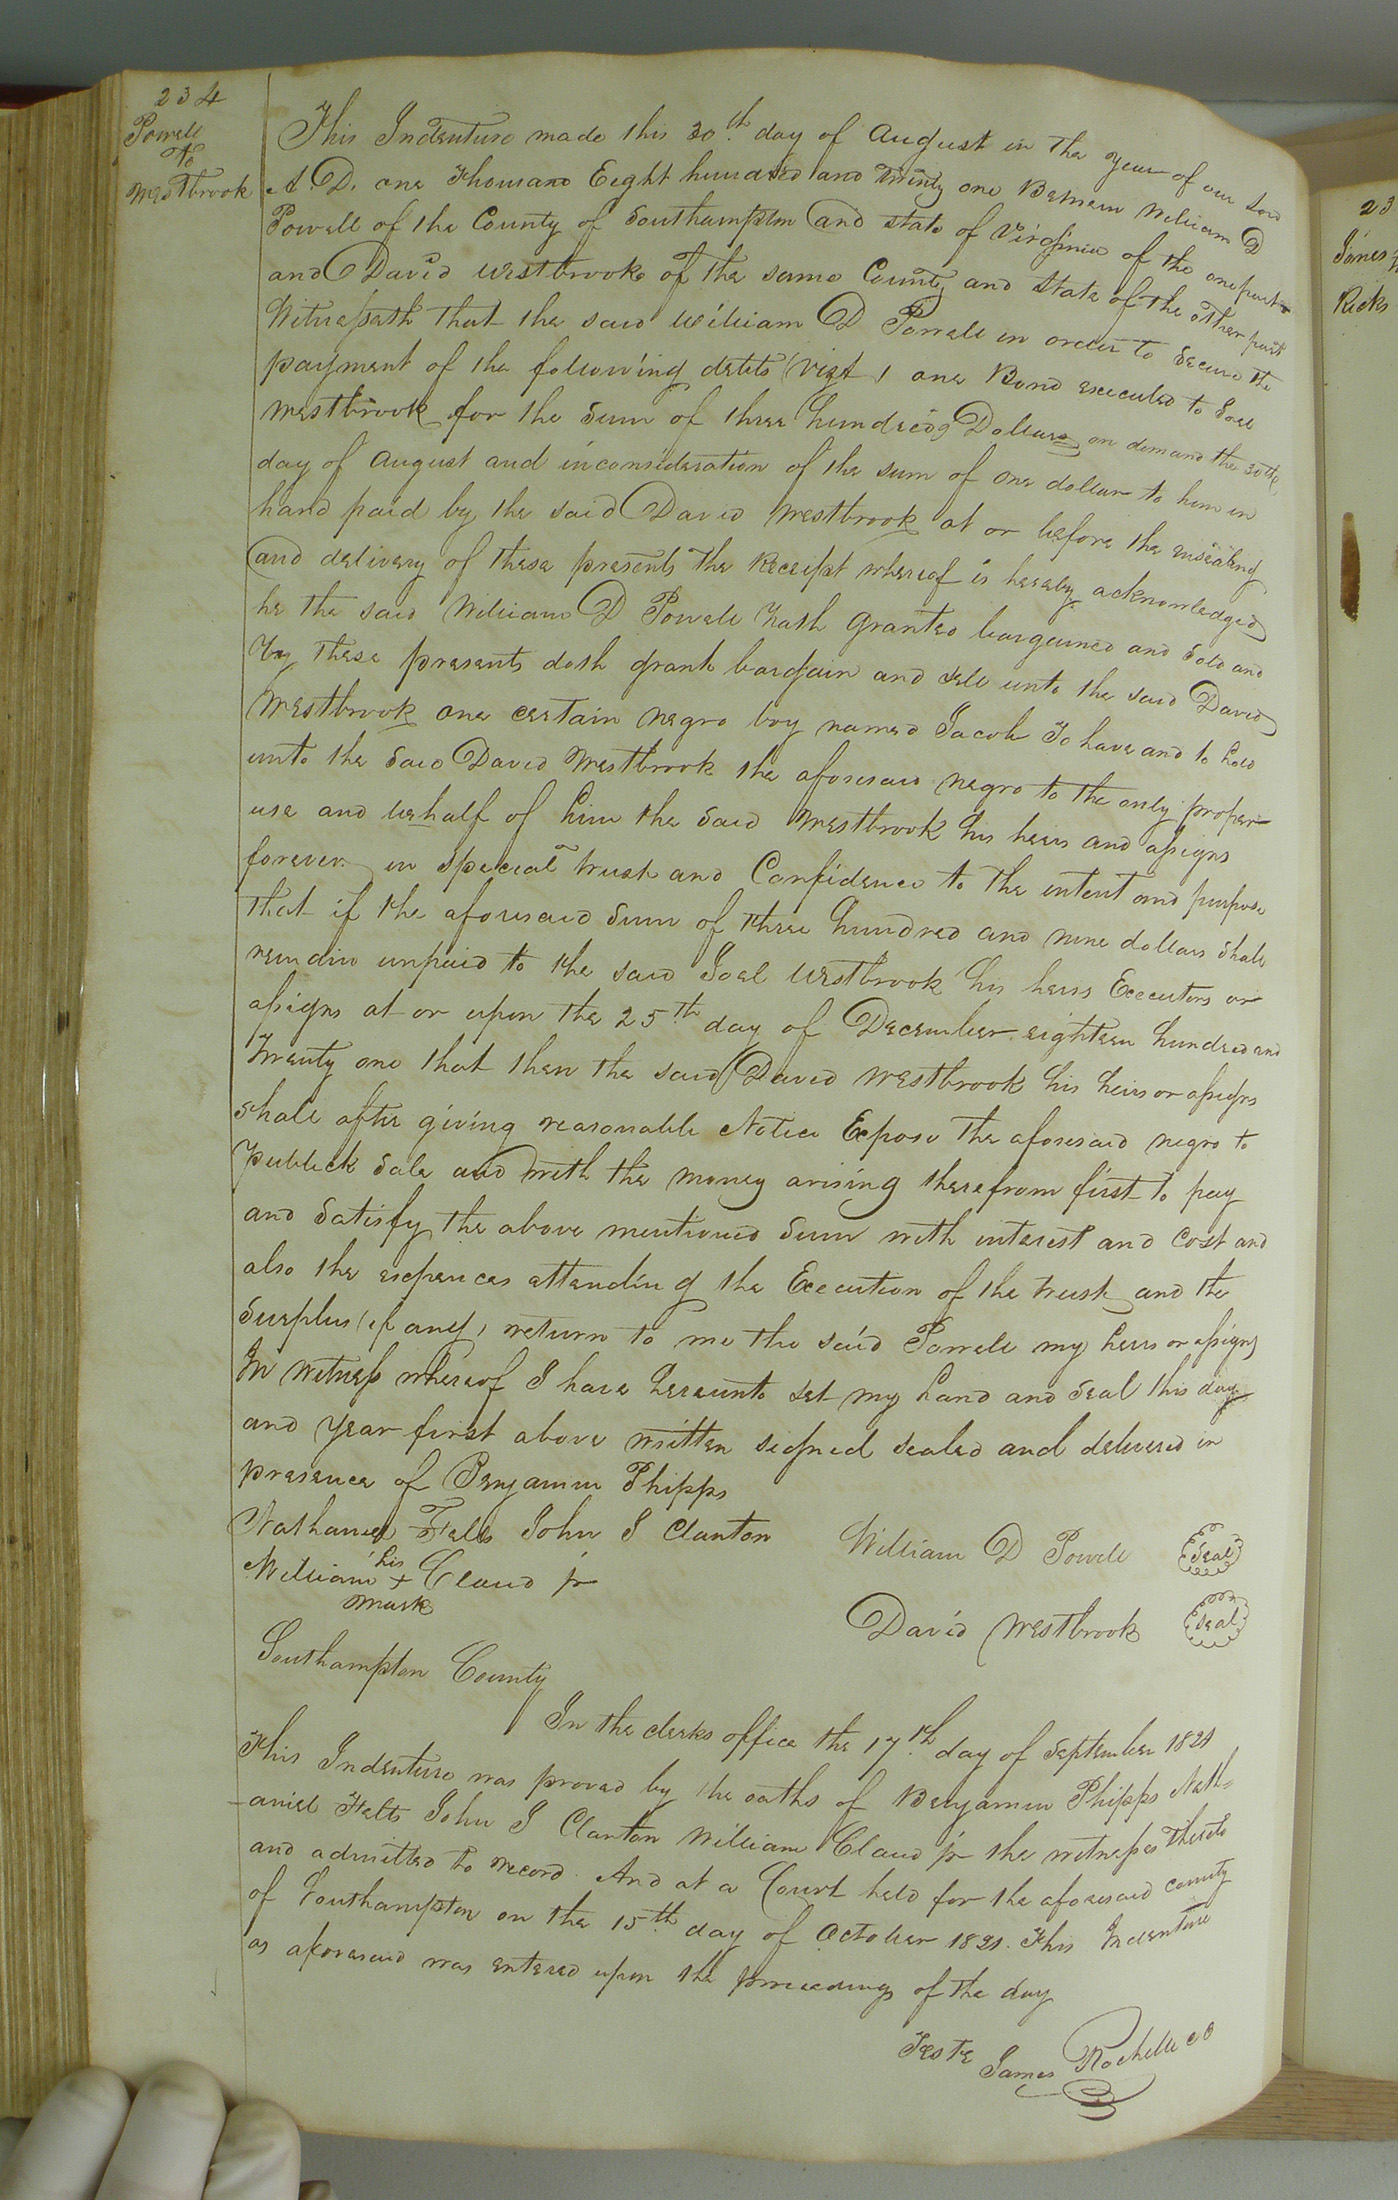 234
Powell
To
Westbrook
This Indenture made this 30th day of August in the year of our Lord
A D. one Thousand Eight hundred and Twenty one Between William D
Powell of the County of Southampton and state of Virginia of the one part
and David Westbrook of the same County and state of the other part
Witnesseth that the said William D Powell in order to secure the
payment of the following debts (vizt) one Bond executed to Joel
Westbrook for the sum of three hundred 9 Dollars on demand the 30th
day of August and inconsideration of the sum of one dollar to him in
hand paid by the said David Westbrook at or before the ensealing
and delivery of these presents the Receipt whereof is hereby acknowledged
he the said William D Powell hath granted bargained and sold and
by these presents doth grant bargain and sell unto the said David
Westbrook one certain negro boy named Jacob To have and to hold
unto the said David Westbrook the aforesaid negro to the only proper
use and behalf of him the said Westbrook his heirs and assigns
forever in special trust and Confidence to the intent and purpose
that if the aforesaid sum of three hundred and nine dollars shall
remain unpaid to the said Joel Westbrook his heirs Executors or
assigns at or upon the 25th day of December eighteen hundred and
Twenty one that then the said David Westbrook his heirs or assigns
shall after giving reasonable Notice Expose the aforesaid negro to
publick sale and with the money arising therefrom first to pay
and satisfy the above mentioned sum with interest and cost and
also the expences attending the Execution of the trust and the
surplus (if any) return to me the said Powell my heirs or assigns
In witness whereof I have hereunto set my hand and seal this day
and year first above written signed sealed and delivered in
presence of Benjamin Phipps
Nathaniel Felts John J Clanton
William his + Claud jr
mark
William D Powell Seal
David Westbrook Seal
Southampton County
In the clerks office the 17th day of September 1821
This Indenture was proved by the oaths of Benjamin Phipps Nath-
-aniel Felts John J Clanton William Claud jr the witnesses thereto
and admitted to record. And at a Court held for the aforesaid county
of Southampton on the 15th day of October 1821. This Indenture
as aforesaid was entered upon the proceedings of the day
Teste James Rochelle CC
23
Jones
Ricks